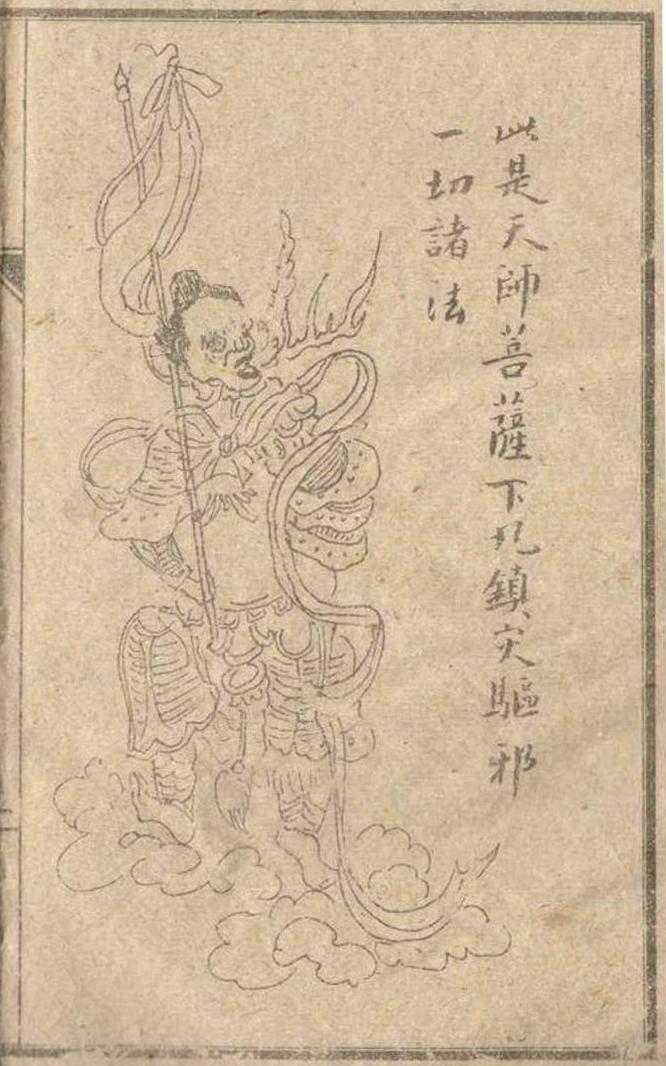 此是天師菩薩下凡鎮灾驅邪
一切諸法